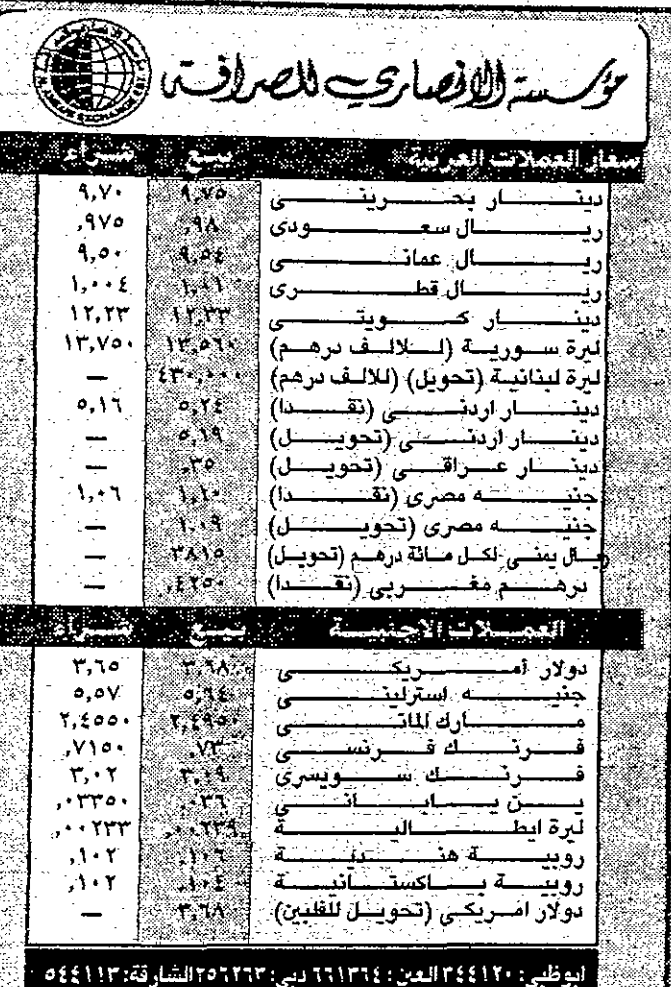 مؤسسة الانصاري للصرافة
AL ANSARI EXCHANGE EST.
سعار العملات العربية بيع شراء
دينار بحرينى ٩,٧٥ ٩,٧٠
ريال سعودى ,٩٨ ,٩٧٥
ريال عمانى ٩,٥٤ ٩,٥٠
ريال قطرى ١,٠١ ١,٠٠٤
دينار كويتى ١٢,٣٣ ١٢,٢٣
ليرة سورية (للالف درهم) ١٣,٥٦٠ ١٣,٧٥٠
ليرة لبنانية (تحويل) (للالف درهم) ٤٣٠,٠٠٠ —
دينار اردنى (نقدا) ٥,٢٤ ٥,١٦
دينار اردنى (تحويل) ٥,١٩ —
دينار عراقى (تحويل) ,٣٥ —
جنيه مصرى (نقدا) ١,١٠ ١,٠٦
جنيه مصرى (تحويل) ١,٠٩ —
ريال يمنى لكل مائة درهم (تحويل) ٣٨١٥ —
درهم مغربى (نقدا) ,٤٢٥٠ —
العملات الاجنبية بيع شراء
دولار أمريكى ٣,٦٨ ٣,٦٥
جنيه استرلينى ٥,٦٤ ٥,٥٧
مارك المانى ٢,٤٩٥٠ ٢,٤٥٥٠
فرنك فرنسى ,٧٣ ,٧١٥٠
فرنك سويسرى ٣,٠٩ ٣,٠٢
ين يابانى ,٠٣٦ ,٠٣٣٥٠
ليرة ايطالية ,٠٠٢٣٩ ,٠٠٢٣٣
روبية هندية ,١٠٦ ,١٠٢
روبية باكستانية ,١٠٤ ,١٠٢
دولار امريكى (تحويل للفلبين) ٣,٦٨ —
ابوظبي: ٣٤٤١٢٠ العين: ٦٦١٣٦٤ دبي: ٢٥٦٢٦٣ الشارقة: ٥٤٤١١٣